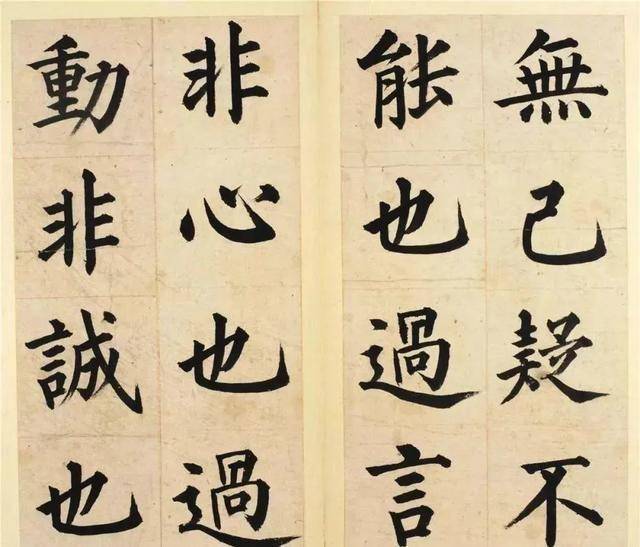 無己疑不
能也過言
非心也過
動非誠也